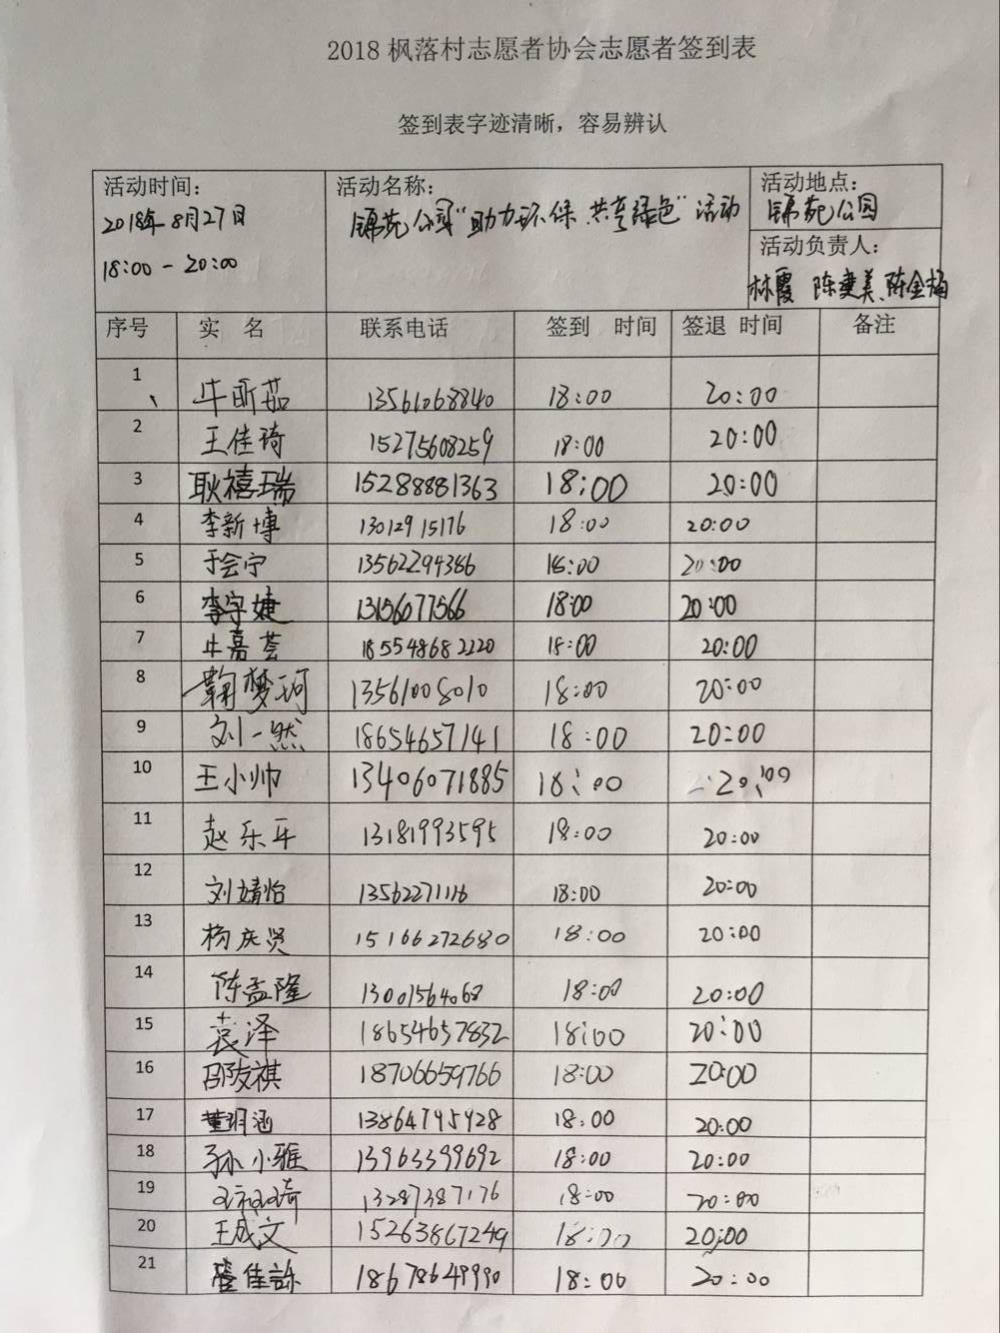 2018 枫落村志愿者协会志愿者签到表
签到表字迹清晰，容易辨认
活动时间：
2018年8月27日
18:00 - 20:00
活动名称：
锦苑公园"助力环保、共享绿色"活动
活动地点：
锦苑公园
活动负责人：
林霞 陈 美、陈金
序号 实 名 联系电话 签到 时间 签退 时间 备注
1 牛昕茹 13561068840 18:00 20:00
2 王佳琦 15275608259 18:00 20:00
3 耿禧瑞 15288881363 18:00 20:00
4 李新博 13012915176 18:00 20:00
5 于会宁 13562294386 18:00 20:00
6 李宇婕 13156077566 18:00 20:00
7 牛嘉荟 185548682220 18:00 20:00
8 鞠梦珂 13561008010 18:00 20:00
9 刘一然 18654657141 18:00 20:00
10 王小帅 13406071885 18:00 20:00
11 赵乐平 13181993595 18:00 20:00
12 刘婧怡 13562271116 18:00 20:00
13 杨庆贤 15166272680 18:00 20:00
14 陈孟隆 13001564068 18:00 20:00
15 袁泽 18654657832 18:00 20:00
16 邵陵祺 18706659766 18:00 20:00
17 董玥涵 13864795928 18:00 20:00
18 孙小雅 13963399692 18:00 20:00
19 13287387176 18:00 20:00
20 王成文 15263867249 18:00 20:00
21 佳 18678649990 18:00 20:00